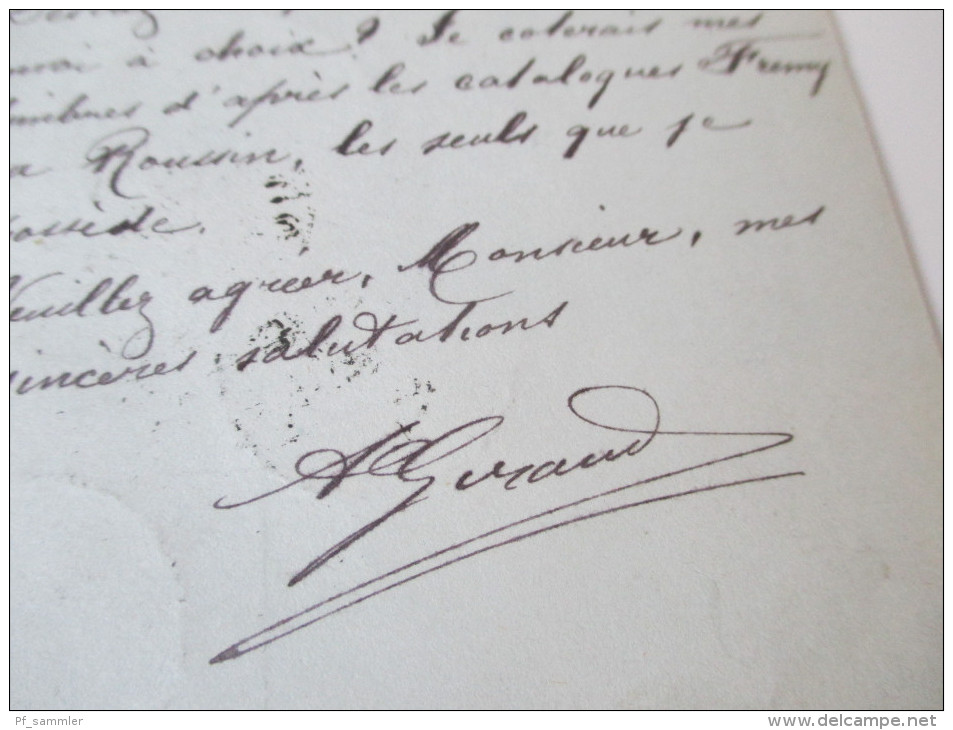 à choix? Je coterais mes
d'après les catalogues Fremy
Roussin, les seuls que je
ossède.
Veuillez agréer, Monsieur, mes
sincères salutations
A Giraud
Pf_sammler
www.delcampe.net